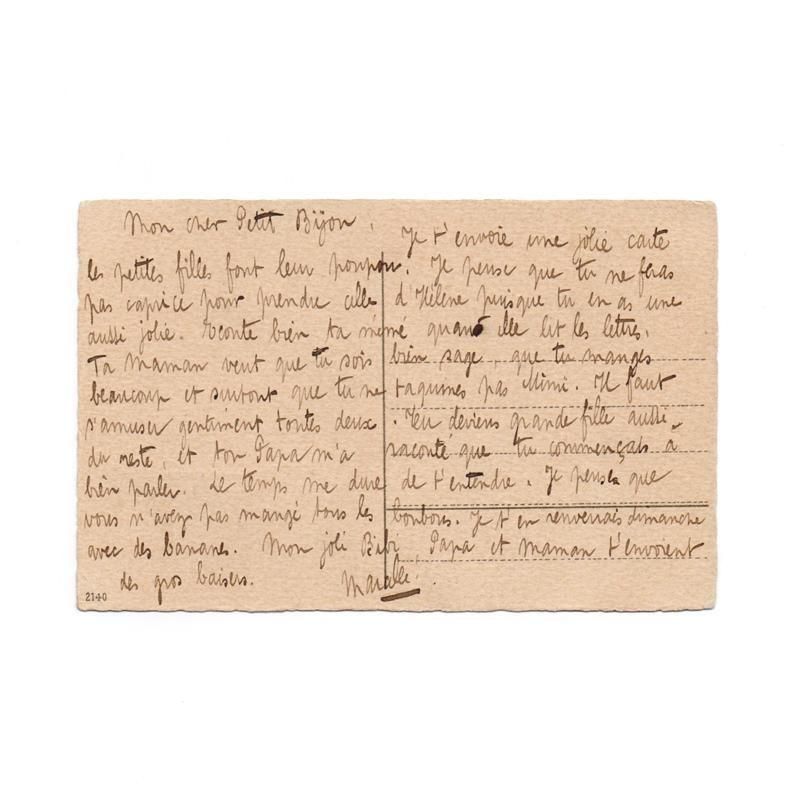 Mon cher Petit Bijou, Je t'envoie une jolie carte
les petites filles font leur poupon. Je pense que tu ne feras
pas caprice pour prendre celle d'Hélène puisque tu en as une
aussi jolie. Ecoute bien ta mémé quand elle lit les lettres.
Ta Maman veut que tu sois bien sage, que tu manges
beaucoup et surtout que tu ne taquines pas Mimi. Il faut
s'amuser gentiment toutes deux. Tu deviens grande fille aussi
du reste, et ton Papa m'a raconté que tu commençais à
bien parler. Le temps me dure de t'entendre. Je pense que
vous n'avez pas mangé tous les bonbons. Je t'en renverrais dimanche
avec des bananes. Mon joli Bibi, Papa et Maman t'envoient
des gros baisers.
2140